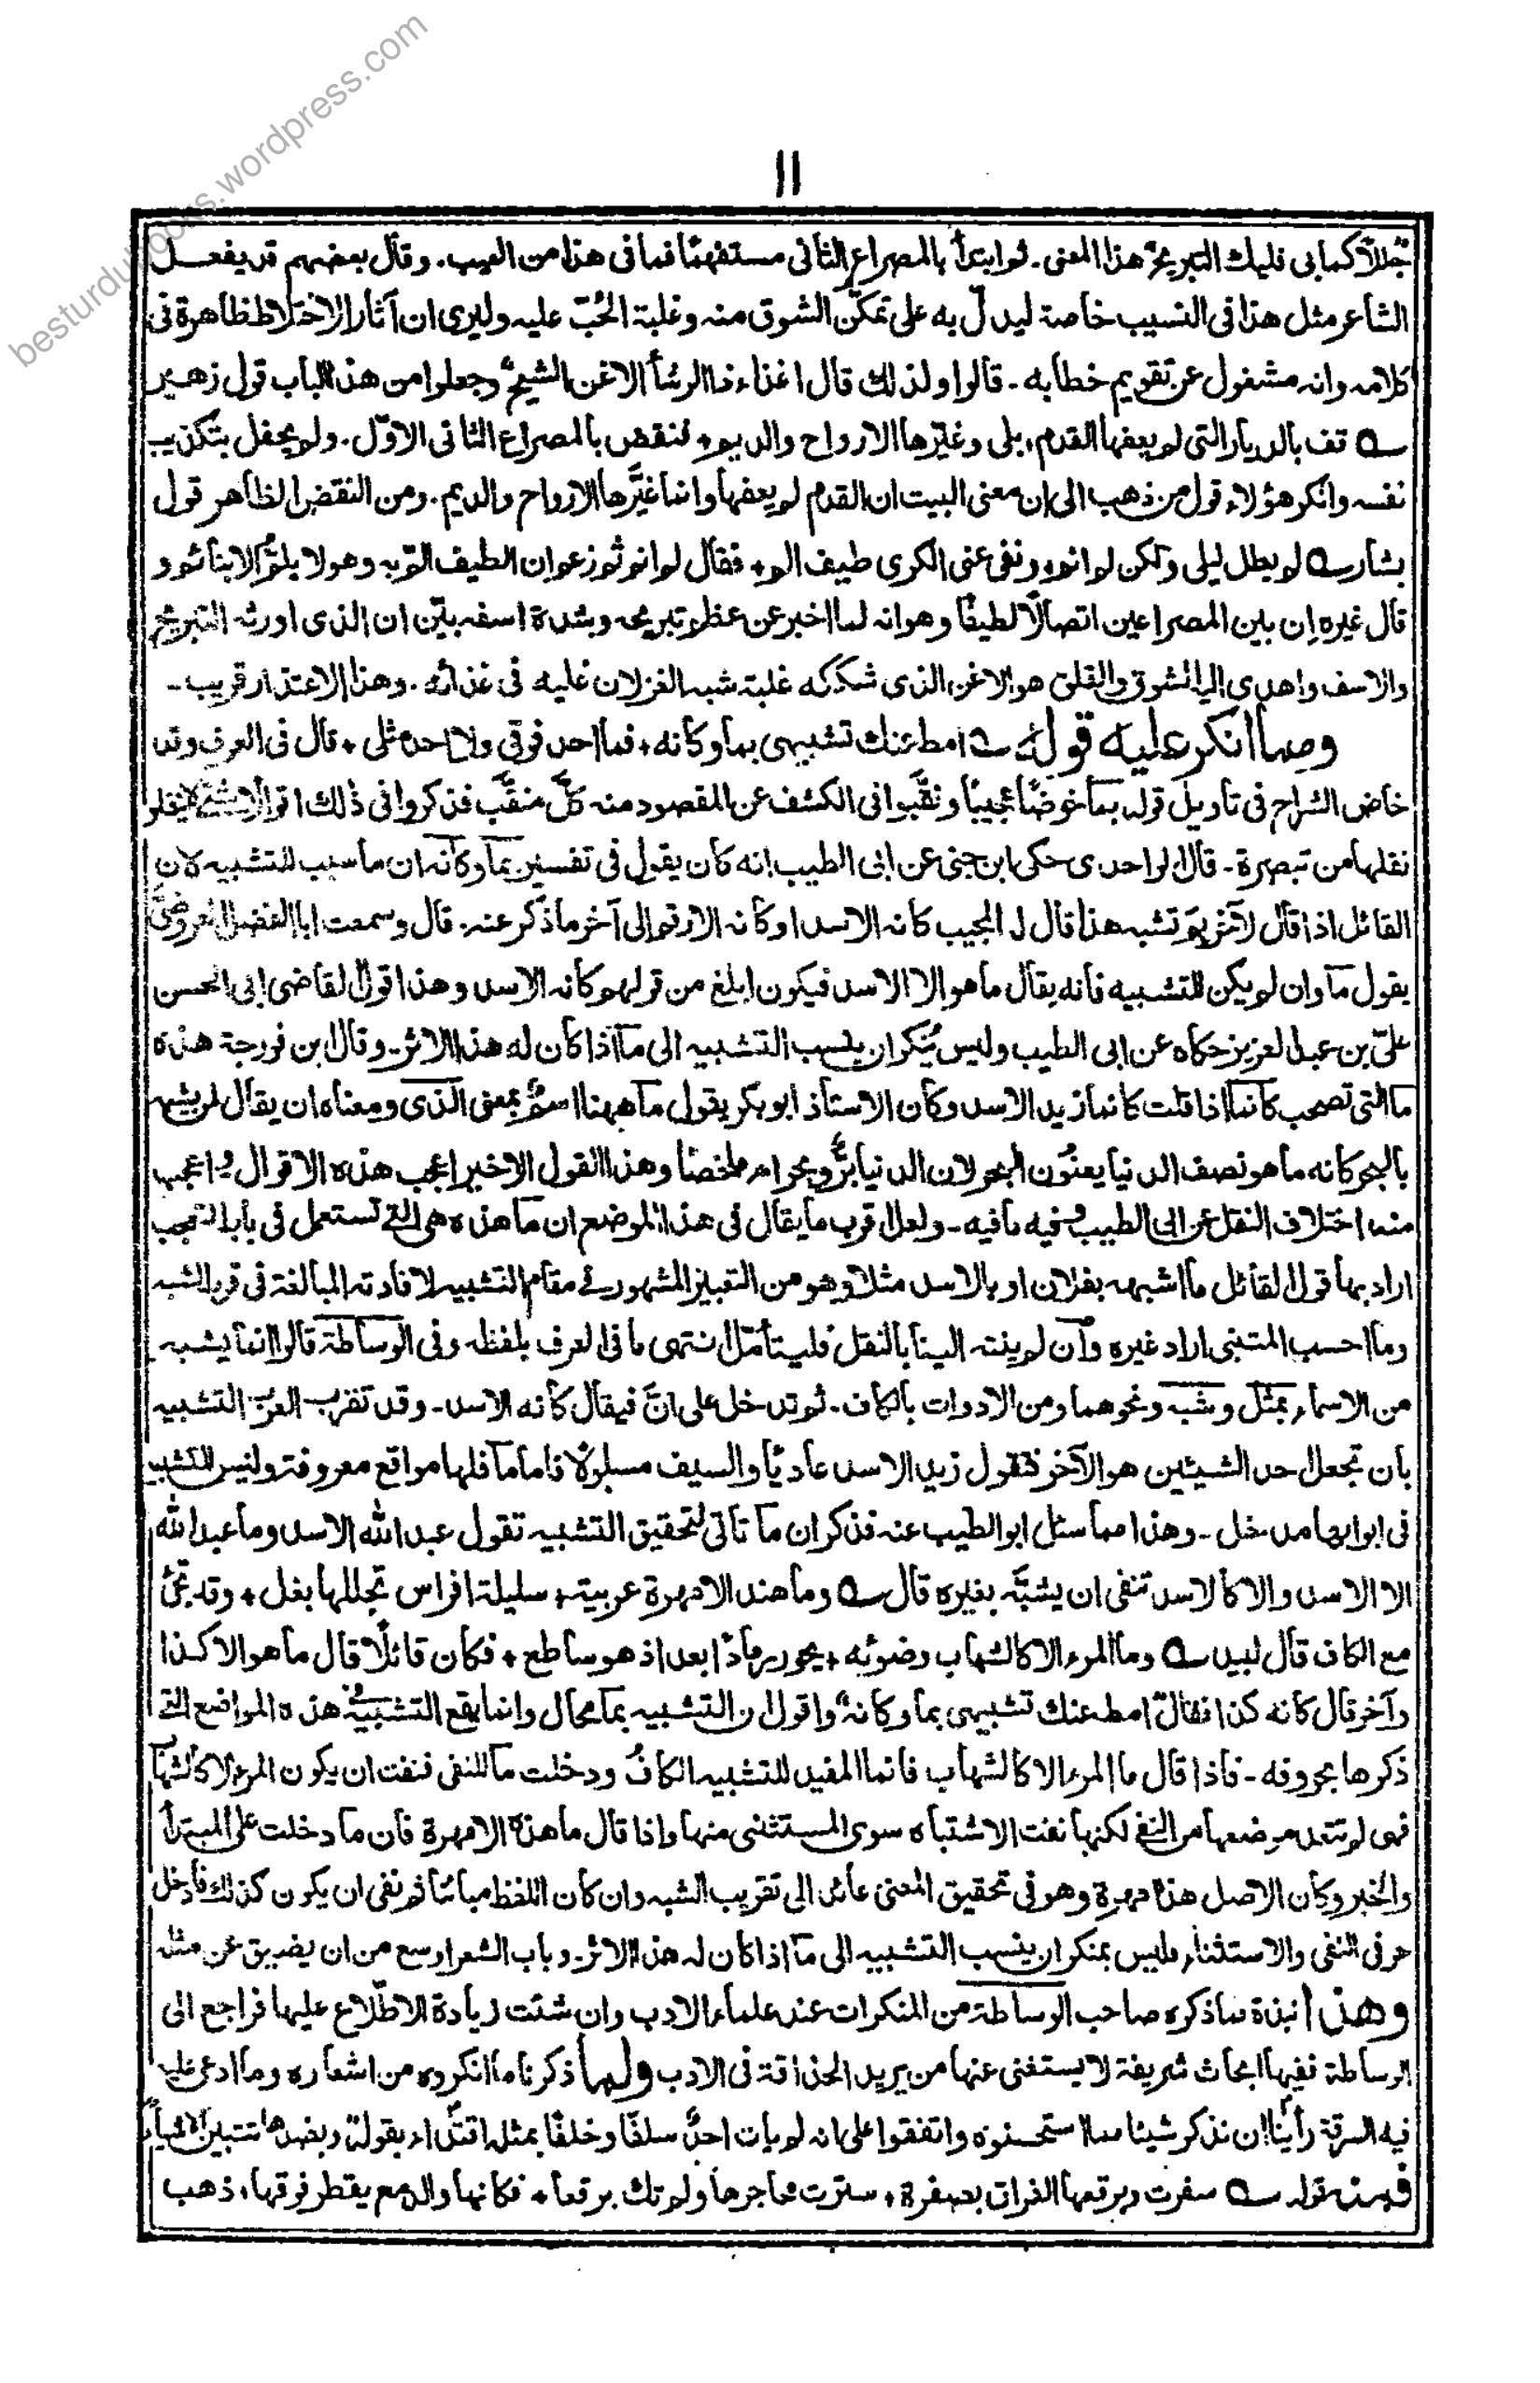 besturdubooks.wordpress.com
١١
جُللًا كما بى فليك التبريحُ هذا المعنى ـ ثم ابتدأ بالمصراع الثانى مستفهمًا فما فى هذا من العيب. وقال بعضهم قد يفعل
الشاعر مثل هذا فى النسيب خاصة ليدلّ به على تمكّن الشوق منه وغلبة الحُبّ عليه وليرى ان آثار الاختلاط ظاهرة فى
كلامه وانه مشغول عن تقويم خطابه ـ قالوا ولذلك قال اغذاء ذا الرشأ الاغن الشيحُ وجعلوا من هذا الباب قول زهير
؎ قف بالديار التى لم يعفها القدم، بلى وغيّرها الارواح والديم، فنقض بالمصراع الثانى الاوّل. ولم يحفل بتكذيب
نفسه وانكر هؤلاء قول من ذهب الى ان معنى البيت ان القدم لم يعفها وانما غيَّرها الارواح والديم. ومن النقض الظاهر قول
بشار ؎ لم يطل ليلى ولكن لم انم، ونفى عنى الكرى طيف الم، فقال لم انم ثم زعم ان الطيف الم به وهو لا يلمُّ الا بنائم و
قال غيره ان بين المصراعين اتصالًا لطيفًا وهو انه لما اخبر عن عظم تبريحه وشدة اسفه بيّن ان الذى اورثه التبريح
والاسف واهدى اليه الشوق والقلق هو الاغن الذى شككه غلبة شبه الغزلان عليه فى غذائه. وهذا الاعتذار قريب ـ
ومما انكر عليه قولهٗ ؎ امط عنك تشبيهى بما وكانه، فما احد فوقى ولا احد مثلى، قال فى العرف وقد
خاض الشراح فى تأويل قوله بما خوضًا عجيبًا ونقّبوا فى الكشف عن المقصود منه كلَّ منقَّب فذكروا فى ذلك اقوالًا شتّى لا يخلو
نقلها من تبصرة ـ قال الواحدى حكى ابن جنى عن ابى الطيب انه كان يقول فى تفسير بما وكانه ان ما سبب للتشبيه لان
القائل اذا قال لآخر بِمَ تشبه هذا قال له المجيب كانه الاسد او كانه الارقم الى آخر ما ذكر عنه. قال وسمعت ابا الفضل العروضىّ
يقول ما وان لم يكن للتشبيه فانه يقال ما هو الا الاسد فيكون ابلغ من قولهم كانه الاسد وهذا قول القاضى ابى الحسن
علىّ بن عبد العزيز حكاه عن ابى الطيب وليس يُنكر ان ينسب التشبيه الى ما اذا كان له هذا الاثر ـ وقال ابن فورجة هذه
ما التى تصحب كانما اذا قلت كانما زيد الاسد وكان الاستاذ ابو بكر يقول ما ههنا اسمٌ بمعنى الذى ومعناه ان يقال لمن يشبه
بالبحر كانه ما هو نصف الدنيا يعنون البحر لان الدنيا برٌّ وبحر اھ ملخصًا وهذا القول الاخير اعجب هذه الاقوال واعجبها
منه اختلاف النقل عن ابى الطيب وفيه ما فيه ـ ولعل اقرب ما يقال فى هذا الموضع ان ما هذه هى التى تستعمل فى باب التعجب
اراد بها قول القائل ما اشبهه بفلان او بالاسد مثلا وهو من التعبير المشهور فى مقام التشبيه لافادته المبالغة فى قرب الشبه
وما احسب المتنبى اراد غيره وان لم ينته الينا بالنقل فليتأمّل انتهى ما فى العرف بلفظه وفى الوساطة قالوا انما يشبه
من الاسماء بمثل وشبه ونحوهما ومن الادوات بالكاف ـ ثم تدخل على انَّ فيقال كانه الاسد ـ وقد تقرب العرب التشبيه
بان تجعل احد الشيئين هو الآخر فتقول زيد الاسد عاديًا والسيف مسلولًا فاما ما فلها مواقع معروفة وليس للتشبيه
فى ابوابها مدخل ـ وهذا مما سئل ابو الطيب عنه فذكر ان ما تاتى لتحقيق التشبيه تقول عبد الله الاسد وما عبد الله
الا الاسد والا كالاسد تنفى ان يشبَّه بغيره قال ؎ وما هند الا مهرة عربية، سليلة افراس تجللها بغل، وقد تجئ
مع الكاف قال لبيد ؎ وما المرء الا كالشهاب وضوئه، يحور رمادًا بعد اذ هو ساطع، فكان قائلًا قال ما هو الا كذا
وآخر قال كانه كذا فقال امط عنك تشبيهى بما وكانهٗ واقول ان التشبيه بما محال وانما يقع التشبيه فى هذه المواضع التى
ذكرها بحروفه ـ فاذا قال ما المرء الا كالشهاب فانما المفيد للتشبيه الكافُ ودخلت ما للنفى فنفت ان يكون المرء الا كالشهاب
فهى لم تتعد موضعها من النفى لكنها نفت الاشتباه سوى المستثنى منها واذا قال ما هند الا مهرة فان ما دخلت على المبتدأ
والخبر وكان الاصل هند مهرة وهو فى تحقيق المعنى عائد الى تقريب الشبه وان كان اللفظ مباينًا ثم نفى ان يكون كذلك فادخل
حرفى النفى والاستثناء، فليس بمنكر ان ينسب التشبيه الى ما اذا كان له هذا الاثر ـ وباب الشعر اوسع من ان يضيق عن مثله
وهذا نبذة مما ذكره صاحب الوساطة من المنكرات عند علماء الادب وان شئت زيادة الاطّلاع عليها فراجع الى
الوساطة ففيها ابحاث شريفة لا يستغنى عنها من يريد الحذاقة فى الادب ولما ذكرنا ما انكروه من اشعاره وما ادعى عليه
فيه السرقة رأينا ان نذكر شيئا مما استحسنوه واتفقوا على انه لم يأت احدٌ سلفًا وخلفًا بمثله اقتداء بقوله وبضدها تتبين الاشياء
فمنہ قوله ؎ سفرت وبرقعها الفراق بصفرة، سترت محاجرها ولم تك برقعا، فكانها والدمع يقطر فوقها، ذهب